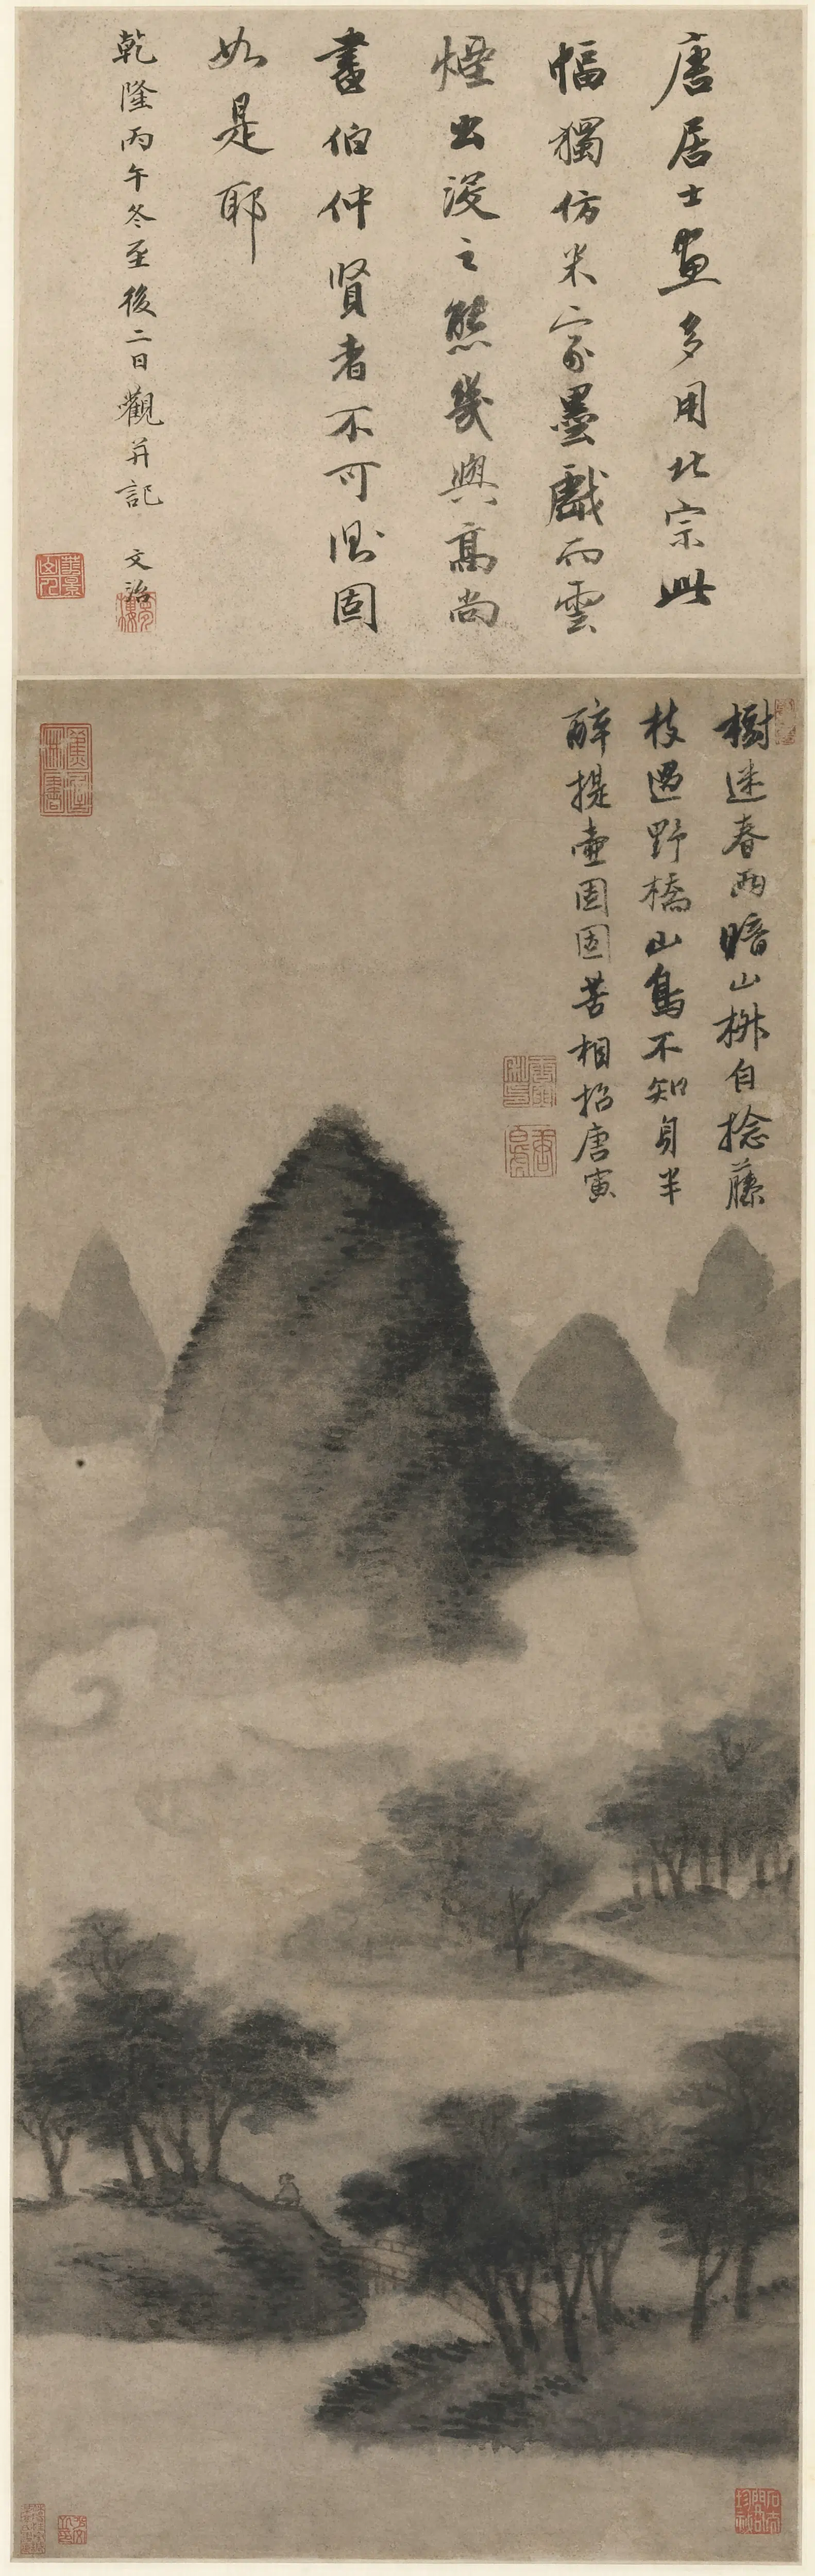 唐居士畫多用北宗此
幅獨仿米家墨戲而雲
煙出沒之態幾與高尚
書伯仲賢者不可測固
如是耶
乾隆丙午冬至後二日觀并記 文治
樹迷春雨暗山椒自捻藤
枝過野橋山鳥不知身半
醉提壺固固苦相招唐寅